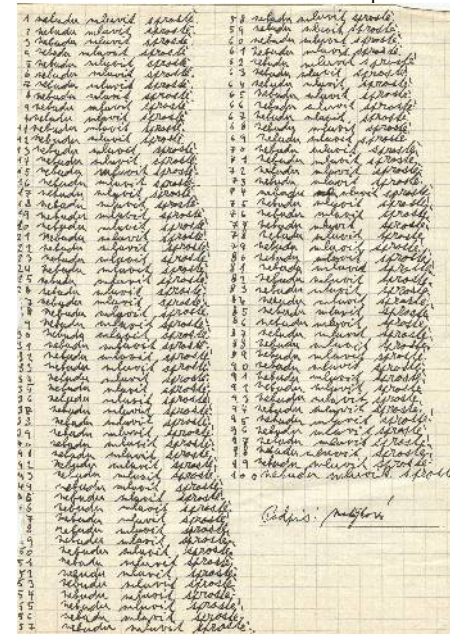 1 nebudu mluvit sprostě.
2 nebudu mluvit sprostě.
3 nebudu mluvit sprostě.
4 nebudu mluvit sprostě.
5 nebudu mluvit sprostě.
6 nebudu mluvit sprostě.
7 nebudu mluvit sprostě.
8 nebudu mluvit sprostě.
9 nebudu mluvit sprostě.
10 nebudu mluvit sprostě.
11 nebudu mluvit sprostě.
12 nebudu mluvit sprostě.
13 nebudu mluvit sprostě.
14 nebudu mluvit sprostě.
15 nebudu mluvit sprostě.
16 nebudu mluvit sprostě.
17 nebudu mluvit sprostě.
18 nebudu mluvit sprostě.
19 nebudu mluvit sprostě.
20 nebudu mluvit sprostě.
21 nebudu mluvit sprostě.
22 nebudu mluvit sprostě.
23 nebudu mluvit sprostě.
24 nebudu mluvit sprostě.
25 nebudu mluvit sprostě.
26 nebudu mluvit sprostě.
27 nebudu mluvit sprostě.
28 nebudu mluvit sprostě.
29 nebudu mluvit sprostě.
30 nebudu mluvit sprostě.
31 nebudu mluvit sprostě.
32 nebudu mluvit sprostě.
33 nebudu mluvit sprostě.
34 nebudu mluvit sprostě.
35 nebudu mluvit sprostě.
36 nebudu mluvit sprostě.
37 nebudu mluvit sprostě.
38 nebudu mluvit sprostě.
39 nebudu mluvit sprostě.
40 nebudu mluvit sprostě.
41 nebudu mluvit sprostě.
42 nebudu mluvit sprostě.
43 nebudu mluvit sprostě.
44 nebudu mluvit sprostě.
45 nebudu mluvit sprostě.
46 nebudu mluvit sprostě.
47 nebudu mluvit sprostě.
48 nebudu mluvit sprostě.
49 nebudu mluvit sprostě.
50 nebudu mluvit sprostě.
51 nebudu mluvit sprostě.
52 nebudu mluvit sprostě.
53 nebudu mluvit sprostě.
54 nebudu mluvit sprostě.
55 nebudu mluvit sprostě.
56 nebudu mluvit sprostě.
57 nebudu mluvit sprostě.
58 nebudu mluvit sprostě.
59 nebudu mluvit sprostě.
60 nebudu mluvit sprostě.
61 nebudu mluvit sprostě.
62 nebudu mluvit sprostě.
63 nebudu mluvit sprostě.
64 nebudu mluvit sprostě.
65 nebudu mluvit sprostě.
66 nebudu mluvit sprostě.
67 nebudu mluvit sprostě.
68 nebudu mluvit sprostě.
69 nebudu mluvit sprostě.
70 nebudu mluvit sprostě.
71 nebudu mluvit sprostě.
72 nebudu mluvit sprostě.
73 nebudu mluvit sprostě.
74 nebudu mluvit sprostě.
75 nebudu mluvit sprostě.
76 nebudu mluvit sprostě.
77 nebudu mluvit sprostě.
78 nebudu mluvit sprostě.
79 nebudu mluvit sprostě.
80 nebudu mluvit sprostě.
81 nebudu mluvit sprostě.
82 nebudu mluvit sprostě.
83 nebudu mluvit sprostě.
84 nebudu mluvit sprostě.
85 nebudu mluvit sprostě.
86 nebudu mluvit sprostě.
87 nebudu mluvit sprostě.
88 nebudu mluvit sprostě.
89 nebudu mluvit sprostě.
90 nebudu mluvit sprostě.
91 nebudu mluvit sprostě.
92 nebudu mluvit sprostě.
93 nebudu mluvit sprostě.
94 nebudu mluvit sprostě.
95 nebudu mluvit sprostě.
96 nebudu mluvit sprostě.
97 nebudu mluvit sprostě.
98 nebudu mluvit sprostě.
99 nebudu mluvit sprostě.
100 nebudu mluvit sprostě
Podpis: